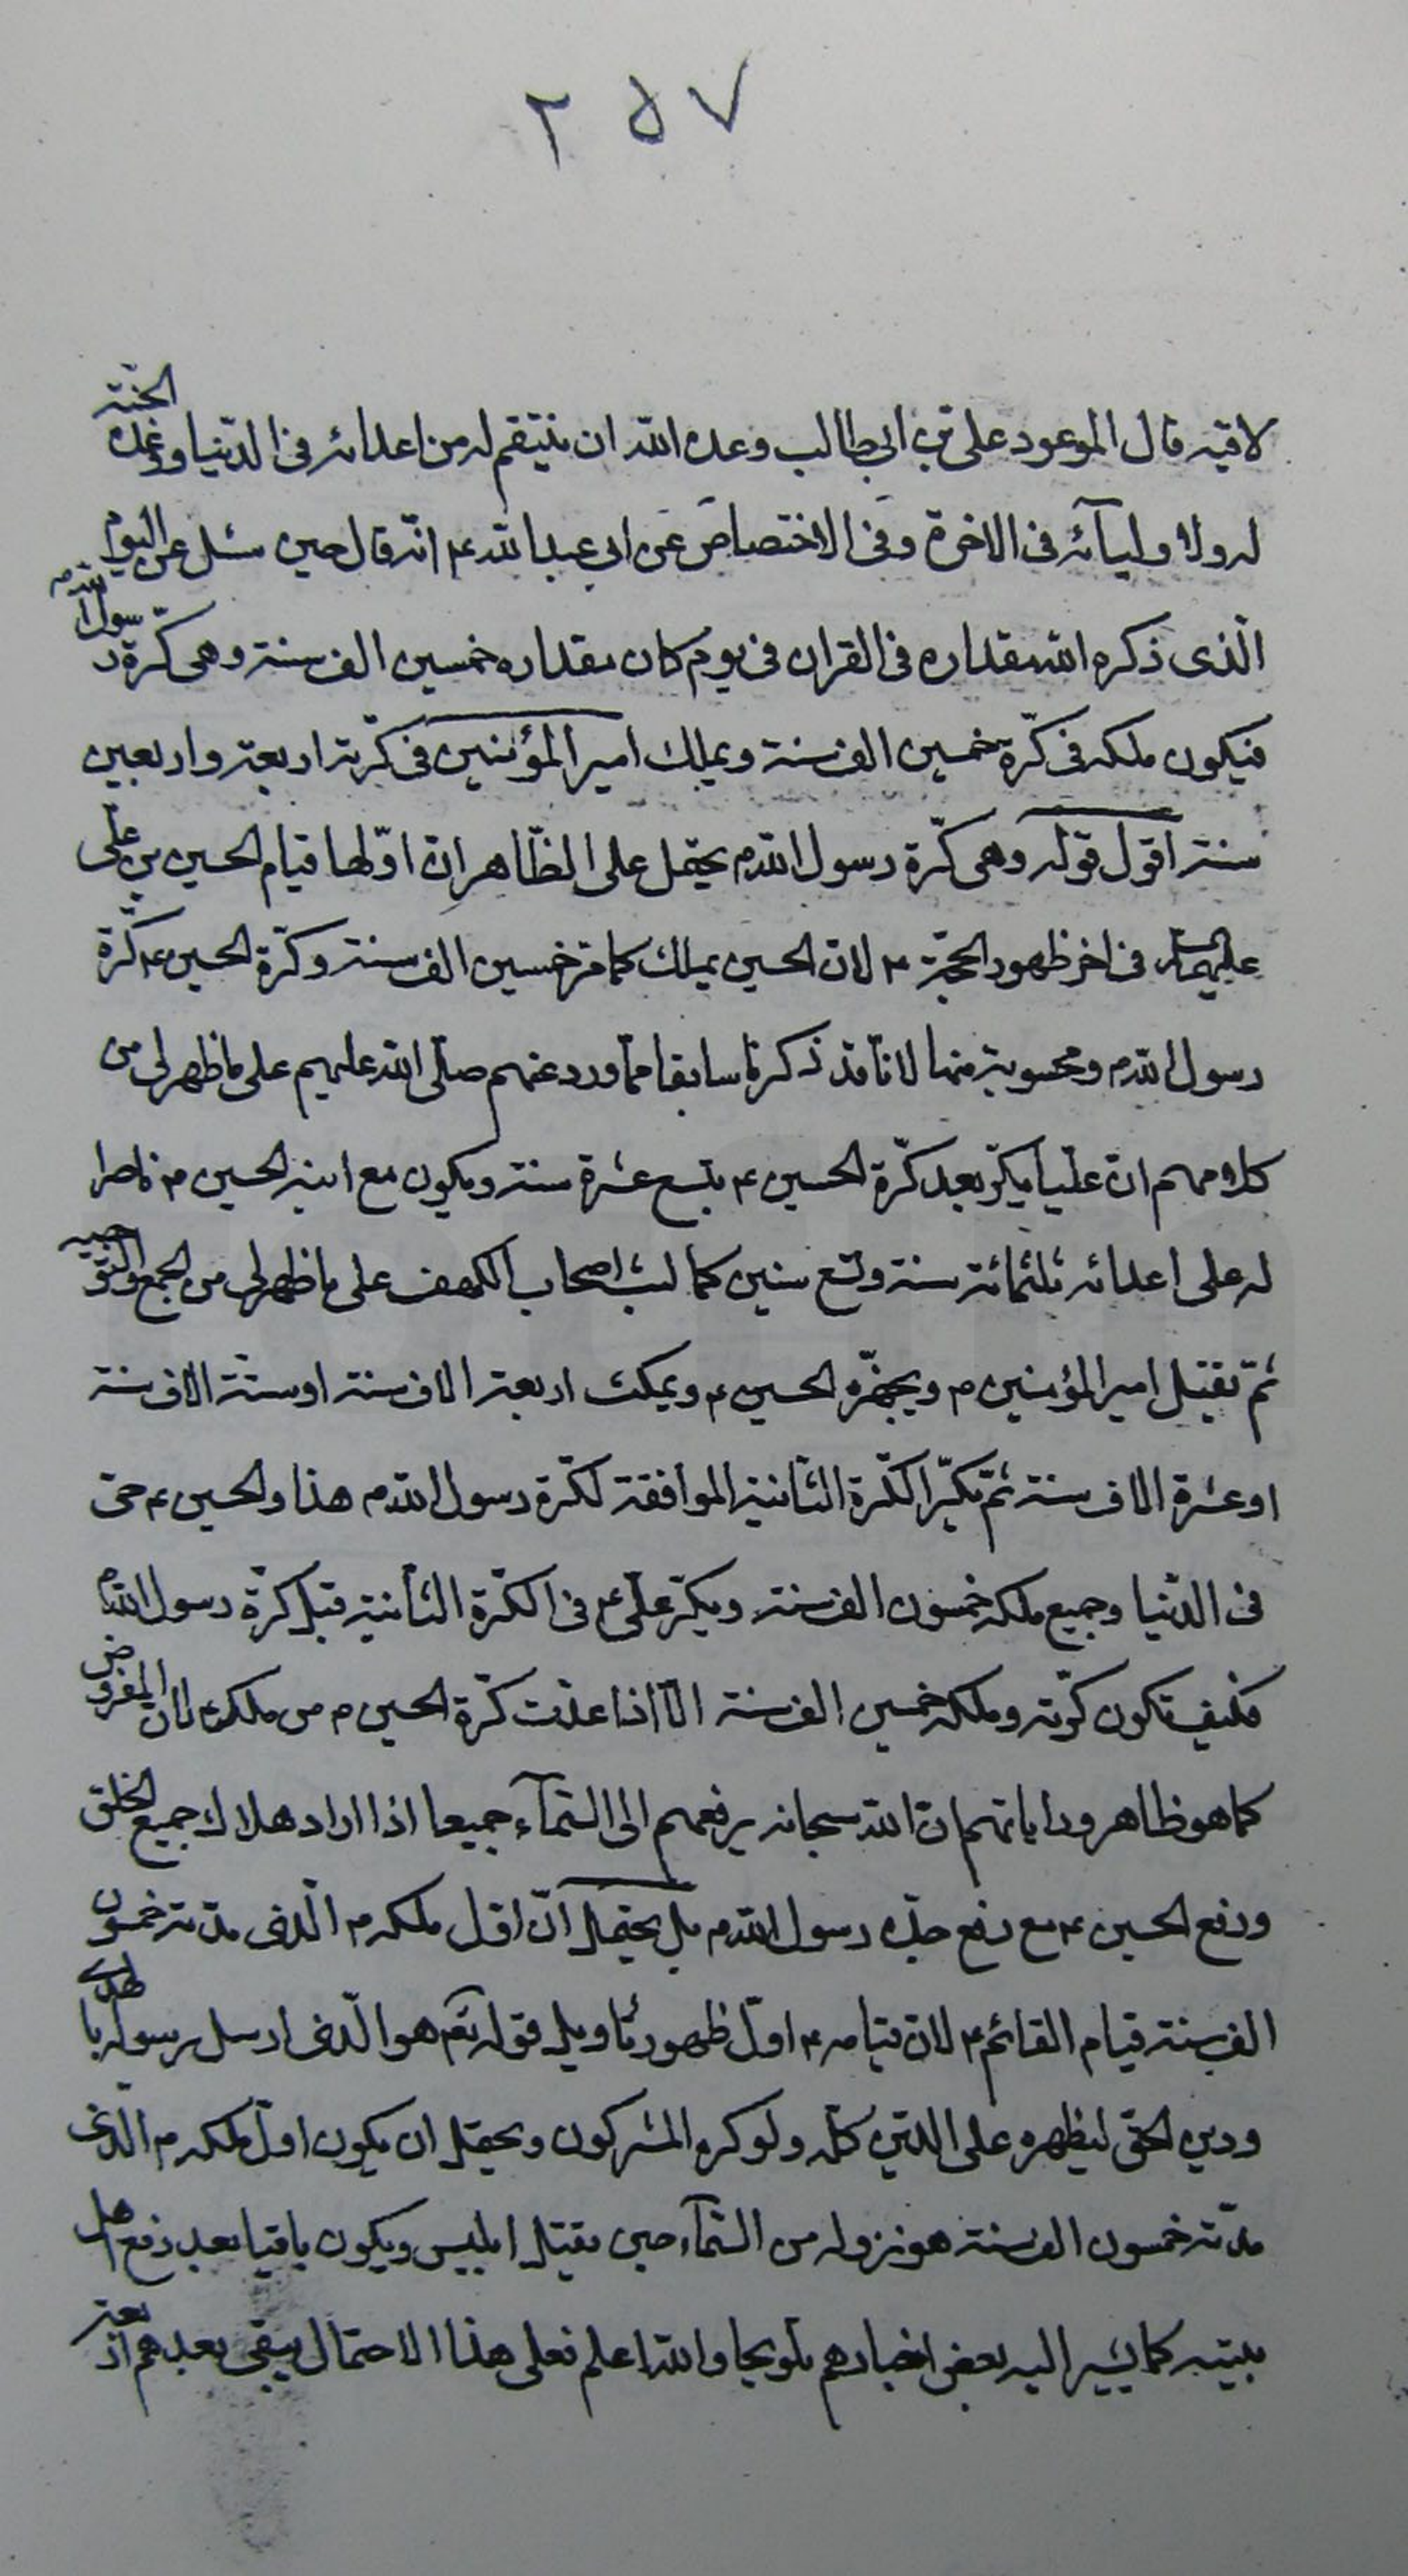 ٢٥٧
لاقيه قال الموعود علي بن ابيطالب وعده الله ان ينتقم له من اعدائه فى الدنيا ووعده الجنة
له ولاوليآئه فى الاخرة وفى الاختصاص عن ابى عبدالله ع انه قال حين سئل عن اليوم
الّذى ذكره الله مقداره فى القران فى يوم كان مقداره خمسين الف سنة وهى كرّة رسول الله ص
فيكون ملكه فى كرّته خمسين الف سنة ويملك امير المؤمنين فى كرّته اربعة واربعين
سنة اقول قوله وهى كرّة رسول الله ص يحتمل على الظّاهر ان اوّلها قيام الحسين بن على
عليهما السلام فى اخر ظهور الحجّة ع لان الحسين يملك كما مرّ خمسين الف سنة وكرّة الحسين ع كرّة
رسول الله ص ومحسوبة منها لانا قد ذكرنا سابقا ممّا ورد عنهم صلّى الله عليهم على ما ظهر لى من
كلامهم ان عليّا يكرّ بعد كرّة الحسين ع بتسع عشرة سنة ويكون مع ابنه الحسين ع ناصرا
له على اعدائه ثلثمائة سنة وتسع سنين كما لبث اصحاب الكهف على ما ظهر لى من الجمع والتوجيه
ثمّ يقتل امير المؤمنين ع ويجهّزه الحسين ع ويمكث اربعة الاف سنة او ستّة الاف سنة
او عشرة الاف سنة ثمّ يكرّ الكرّة الثانية الموافقة لكرّة رسول الله ص هذا والحسين ع حىّ
فى الدّنيا وجميع ملكه خمسون الف سنة ويكرّ علىّ ع فى الكرّة الثانية قبل كرّة رسول الله ص
فكيف تكون كرّته وملكه خمسين الف سنة الّا اذا عدّت كرّة الحسين ع من ملكه ص لان المفروض
كما هو ظاهر رواياتهم ان الله سبحانه يرفعهم الى السّمآء جميعا اذا اراد هلاك جميع الخلق
ورفع الحسين ع مع رفع جدّه رسول الله ص بل يحتمل انّ اوّل ملكه ص الّذى مدّته خمسون
الف سنة قيام القائم ع لان قيامه ع اوّل ظهور تأويل قوله تعالى هو الّذى ارسل رسوله بالهدى
ودين الحق ليظهره على الدّين كلّه ولو كره المشركون ويحتمل ان يكون اوّل ملكه ص الّذى
مدّته خمسون الف سنة هو نزوله من السّمآء حين يقتل ابليس ويكون باقيا بعد رفع اهل
بيته كما يشير اليه بعض اخبارهم تلويحا والله اعلم فعلى هذا الاحتمال يبقى بعدهم اربعة